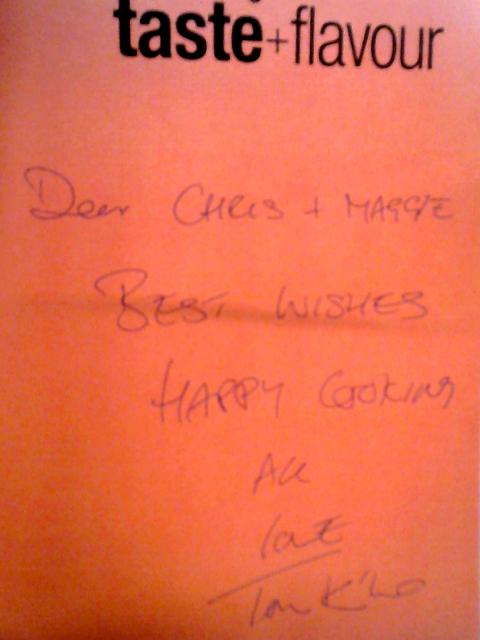 taste+flavour
Dear CHRIS + MAGGIE
BEST WISHES
HAPPY COOKING
All
love
Tom